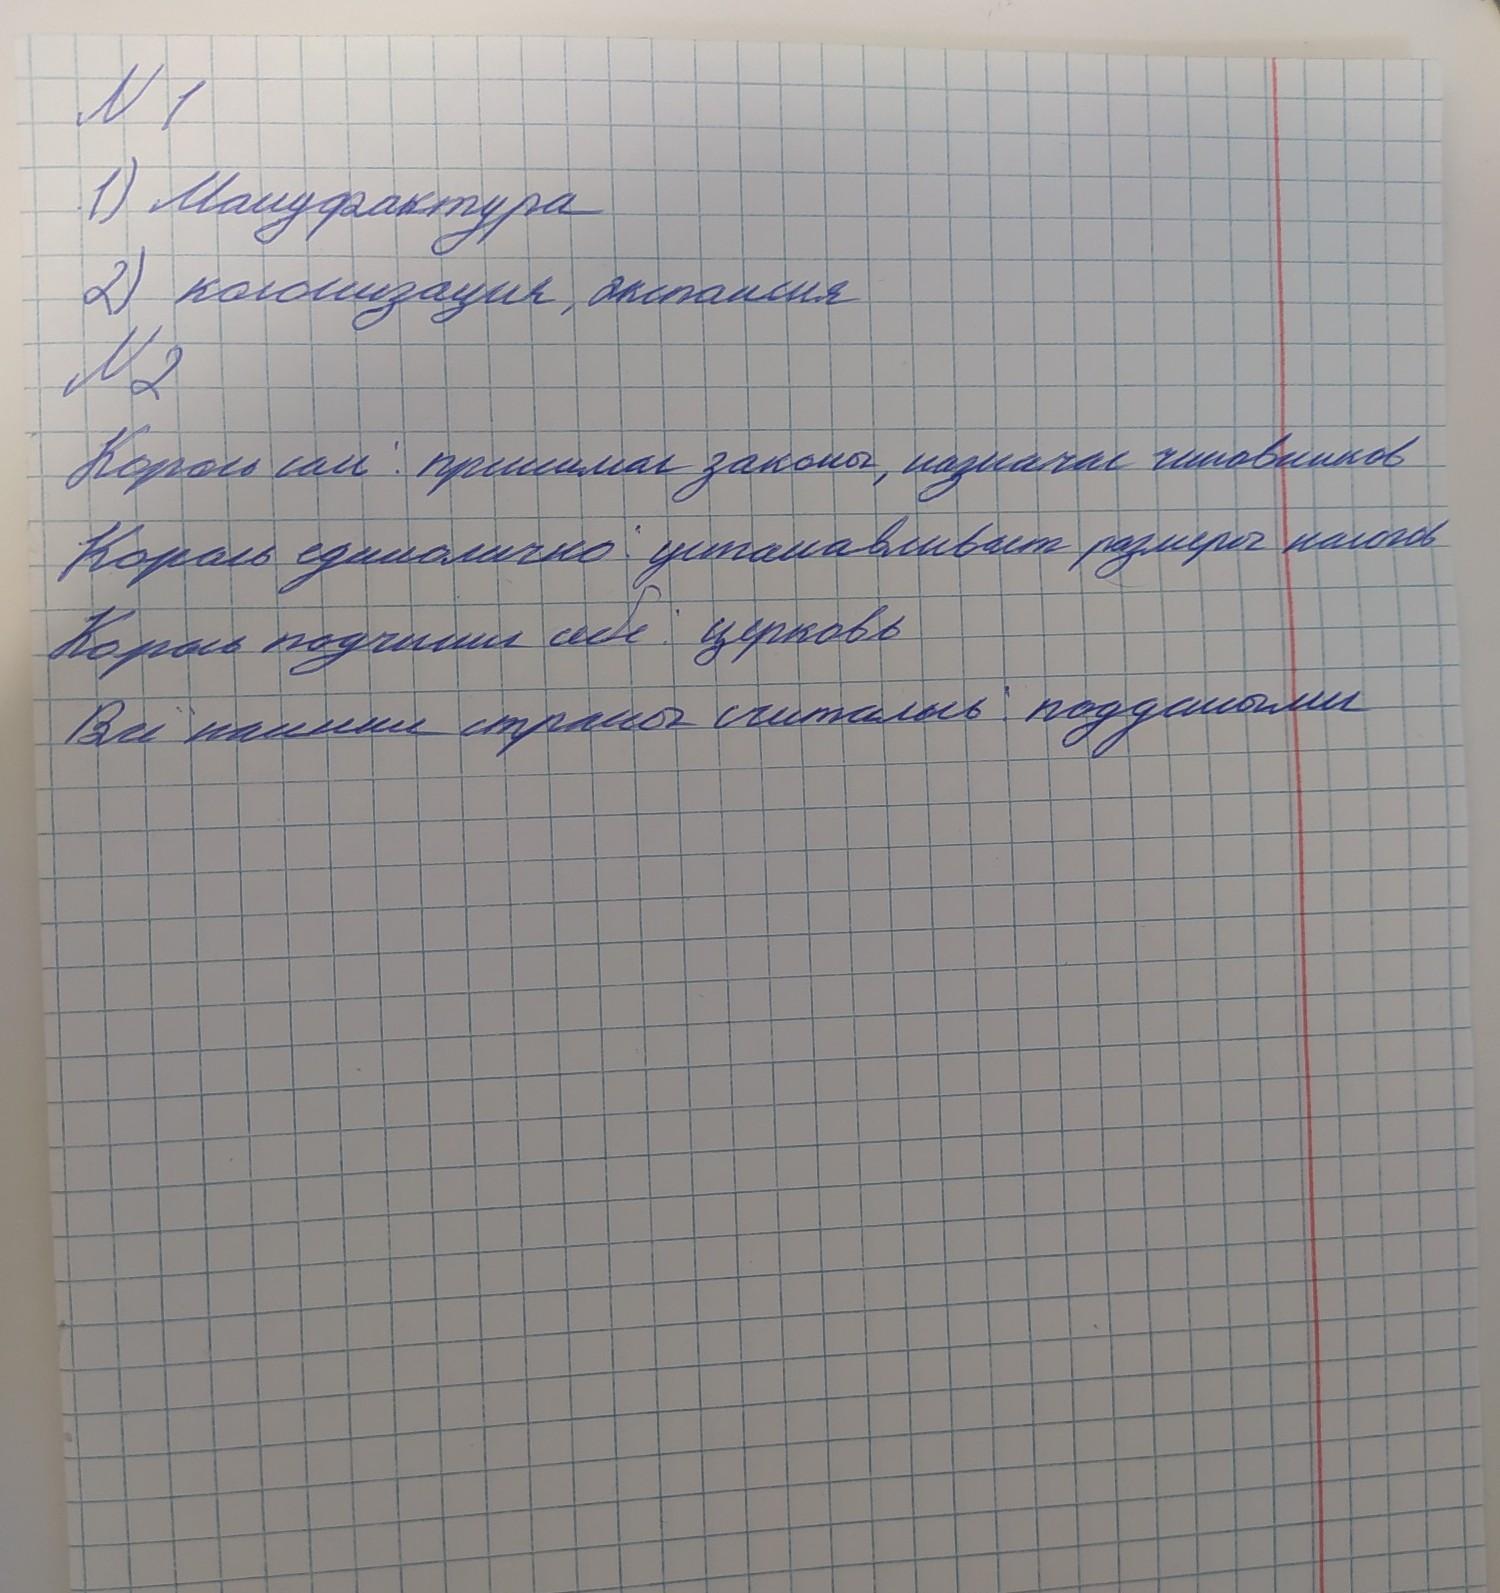 N 1
1) Мануфактура
2) колонизация, экспансия
N 2
Король сам: принимал законы, назначал чиновников
Король единолично: устанавливает размеры налогов
Король подчинил себе: церковь
Все страны считались: подданными